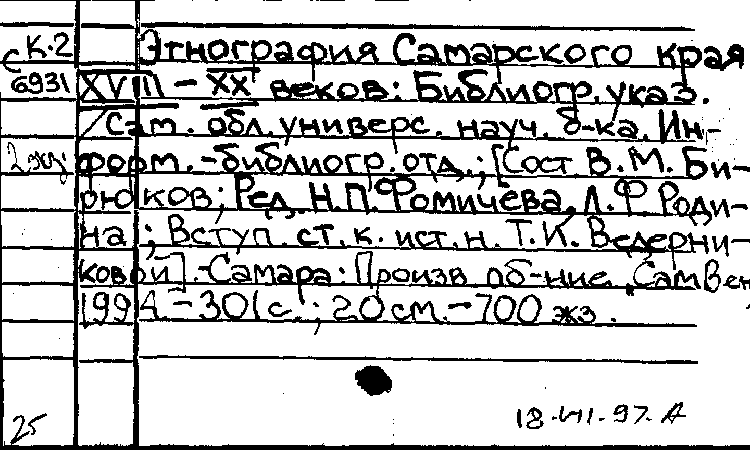 К.2 Этнография Самарского края
С 6931 XVIII – XX веков: Библиогр. указ.
/Сам. обл. универс. науч. б-ка. Ин-
2 экз форм.-библиогр. отд.; [Сост. В. М. Би-
рюков; Ред. Н.П. Фомичёва, Л.Ф Роди-
на; Вступ. ст. к. ист. н. Т. И. Ведерни-
ковой].-Самара: Произв об-ние „СамВен
1994. – 301 с.; 20 см. – 700 экз.
18.VII.97. А
25